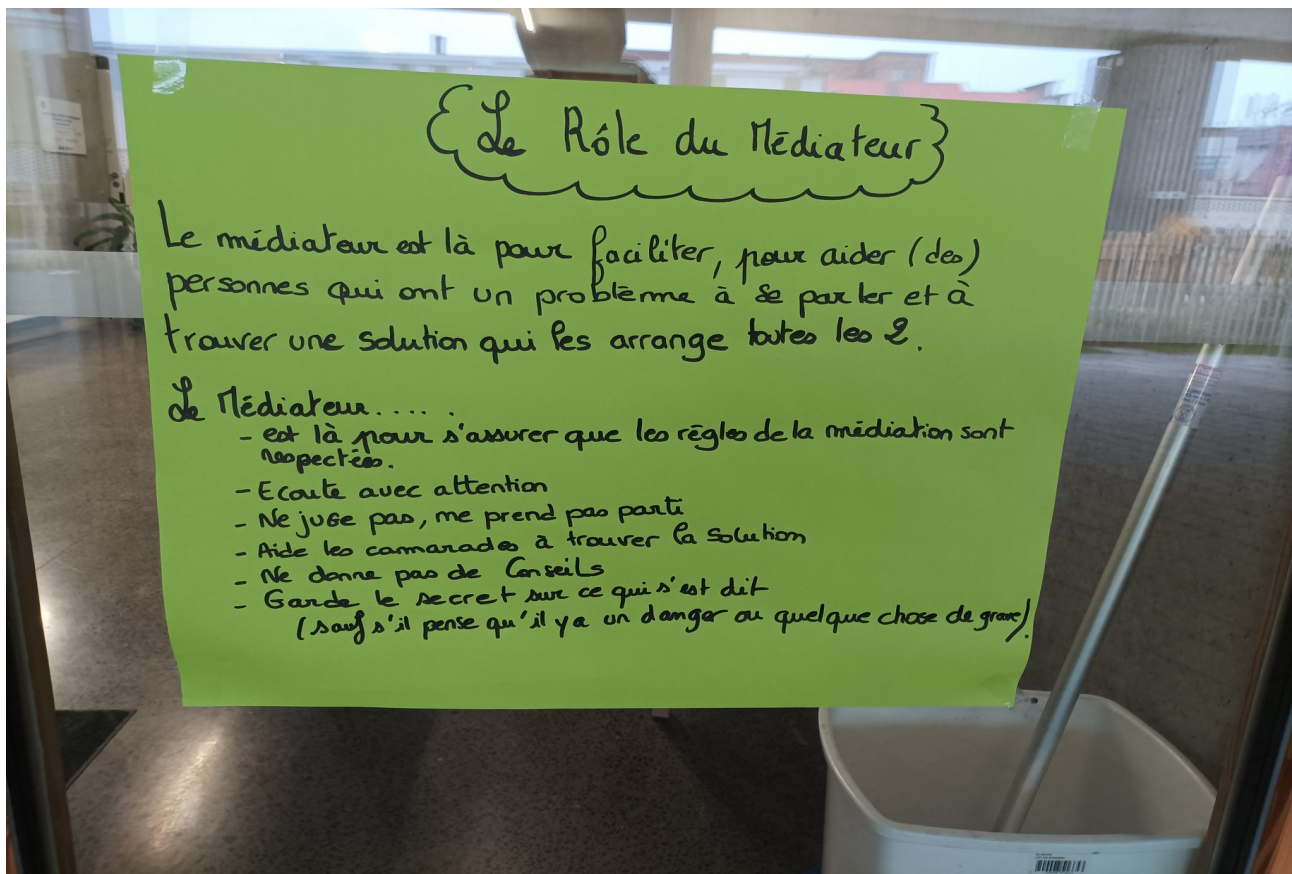 Le Rôle du Médiateur
Le médiateur est là pour faciliter, pour aider (des)
personnes qui ont un problème à se parler et à
trouver une solution qui les arrange toutes les 2.
Le Médiateur.... .
- est là pour s'assurer que les règles de la médiation sont
respectées.
- Ecoute avec attention
- Ne juge pas, ne prend pas parti
- Aide les camarades à trouver la solution
- Ne donne pas de Conseils
- Garde le secret sur ce qui s'est dit
(sauf s'il pense qu'il y a un danger ou quelque chose de grave).